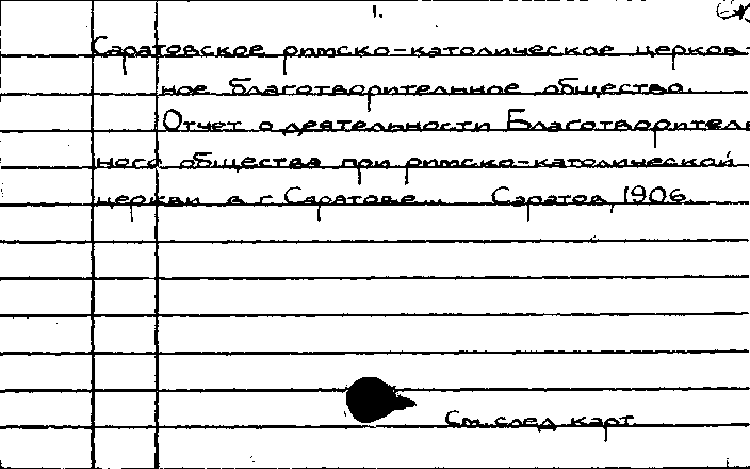 1.
Саратовское римско-католическое церков-
ное благотворительное общество.
Отчет о деятельности Благотворитель
ного общества при римско-католической
церкви в г. Саратове... Саратов, 1906.
См. след. карт.